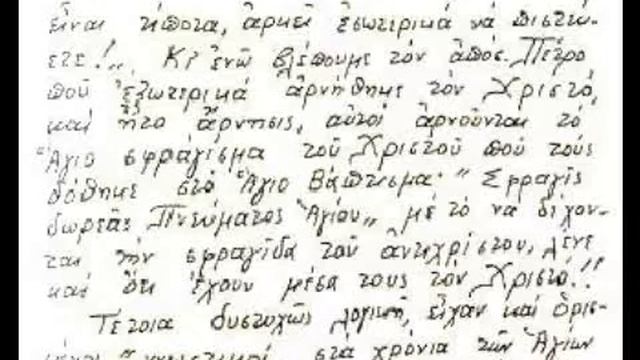 εἶναι τίποτα, ἀρκεῖ ἐσωτερικά νά πιστεύ-
ετε!,, Κι ἐνῶ βλέπουμε τόν ἀπόσ. Πέτρο
πού ἐξωτερικά ἀρνήθηκε τόν Χριστό,
καί ἦτο ἄρνησις, αὐτοί ἀρνοῦνται τό
Ἅγιο σφράγισμα τοῦ Χριστοῦ πού τούς
δόθηκε στό Ἅγιο Βάπτισμα "Σφραγίς
δωρεᾶς Πνεύματος Ἁγίου,, μέ τό νά δέχον-
ται τήν σφραγῖδα τοῦ ἀντιχρίστου, λένε
καί ὅτι ἔχουν μέσα τους τόν Χριστό!!
Τέτοια δυστυχῶς λογική, εἶχαν καί ὁρισ-
στά χρόνια τῶν Ἁγίων